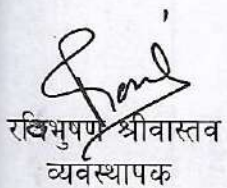 रविभुषण श्रीवास्तव
व्यवस्थापक